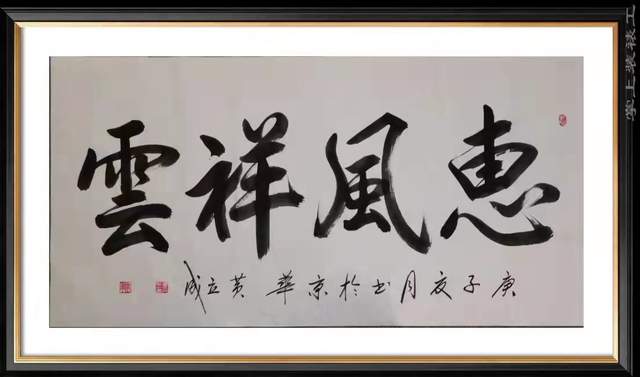 惠風祥雲
庚子夏月书於京華 黄立成
掌上装裱工